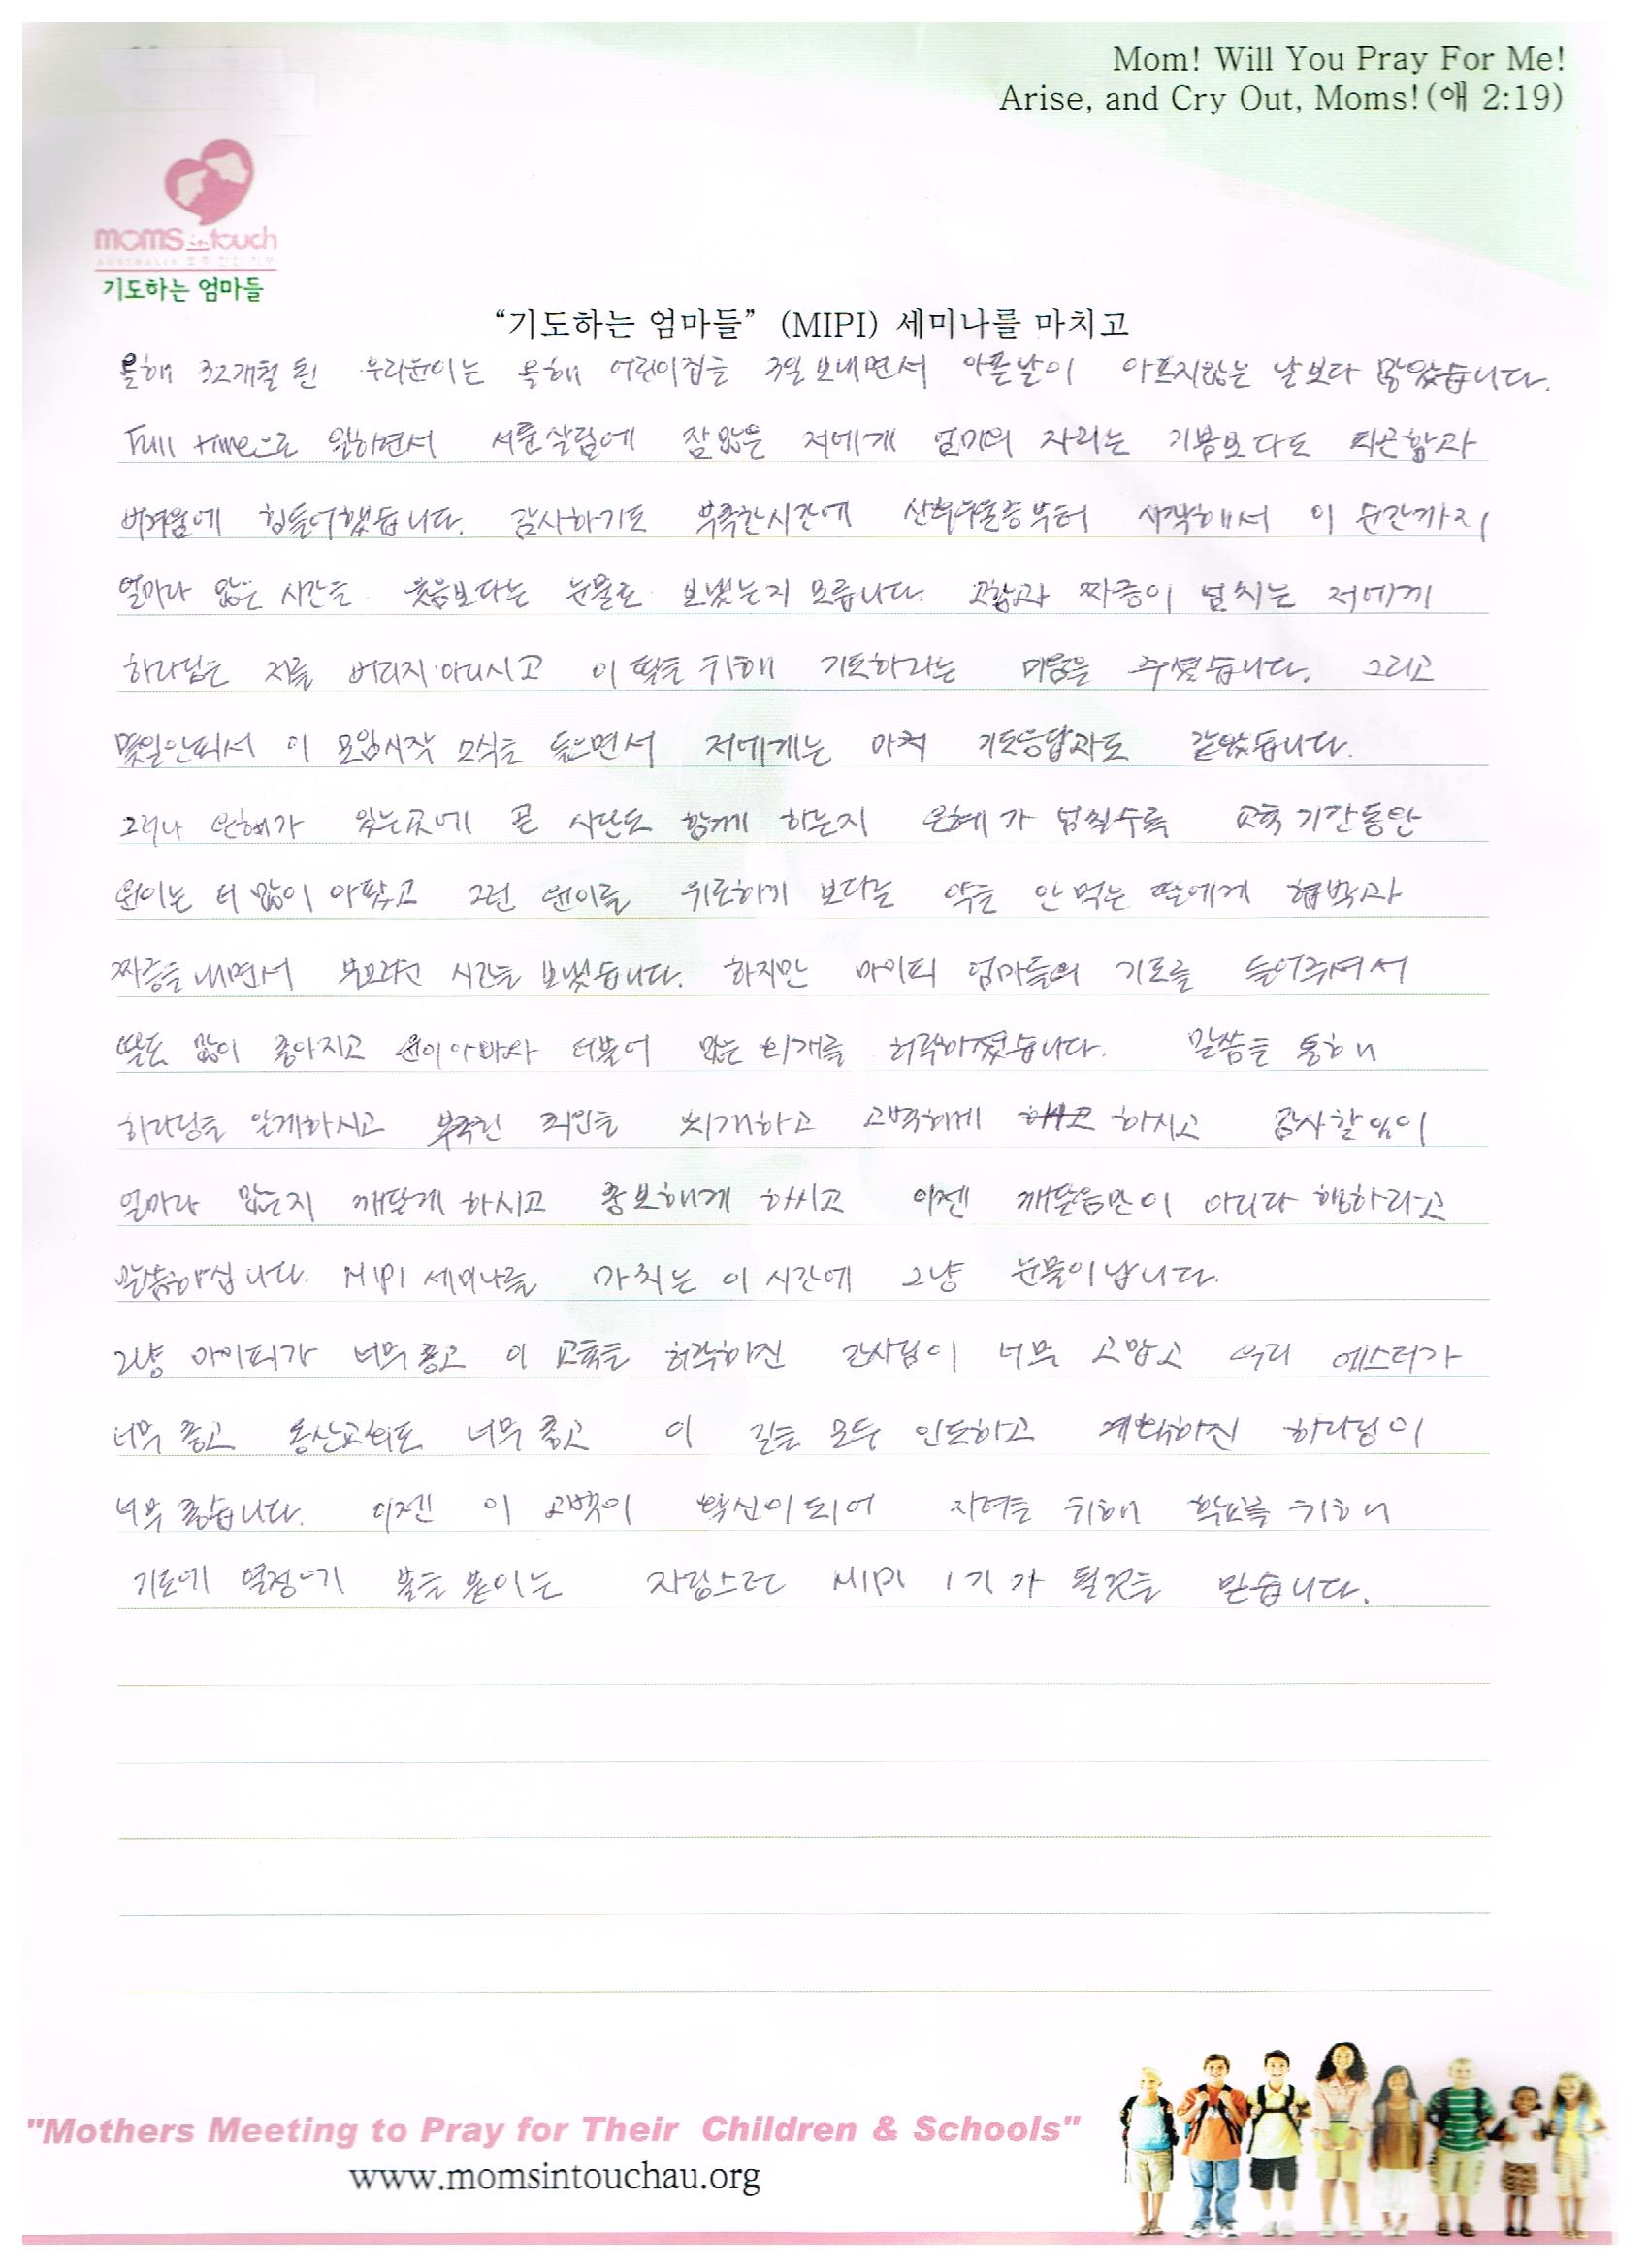 Mom! Will You Pray For Me!
Arise, and Cry Out, Moms!(애 2:19)
moms in touch
AUSTRALIA 호주
기도하는 엄마들
“기도하는 엄마들” (MIPI) 세미나를 마치고
올해 32개월 된 우리윤이는 올해 어린이집을 3일 보내면서 아픈날이 아프지않는 날보다 많았습니다.
Full time으로 일하면서 서툰살림에 잠많은 저에게 엄마의 자리는 기쁨보다도 피곤함과
버거움에 힘들어했습니다. 감사하기도 부족한시간에 산후우울증부터 시작해서 이 순간까지
얼마나 많은 시간을 웃음보다는 눈물로 보냈는지 모릅니다. 고함과 짜증이 넘치는 저에게
하나님은 저를 버리지 아니시고 이 딸을 위해 기도하라는 마음을 주셨습니다. 그리고
몇일안되서 이 모임시작 소식을 들으면서 저에게는 마치 기도응답과도 같았습니다.
그러나 은혜가 있는곳에 곧 사단도 함께 하는지 은혜가 넘칠수록 교육 기간동안
윤이는 더 많이 아팠고 그런 윤이를 위로하기 보다는 약을 안 먹는 딸에게 협박과
짜증을 내면서 시간을 보냈습니다. 하지만 마이피 엄마들의 기도를 들어주셔서
딸도 많이 좋아지고 윤이아빠와 더불어 많은 회개를 허락하셨습니다. 말씀을 통해
하나님을 알게하시고 부족한 죄인을 회개하고 고백하게 하시고 감사할일이
얼마나 많은지 깨닫게 하시고 중보해게 하시고 이젠 깨달음만이 아니라 행하라고
말씀하십니다. MIPI 세미나를 마치는 이 시간에 그냥 눈물이납니다.
그냥 마이피가 너무 좋고 이 교육을 허락하신 간사님이 너무 고맙고 우리 에스더가
너무 좋고 동산교회도 너무 좋고 이 길을 모두 인도하고 계획하신 하나님이
너무 좋습니다. 이젠 이 고백이 확신이되어 자녀를 위해 학교를 위해
기도에 열정에 불을 붙이는 자랑스런 MIPI 1기가 될것을 믿습니다.
"Mothers Meeting to Pray for Their Children & Schools"
www.momsintouchau.org